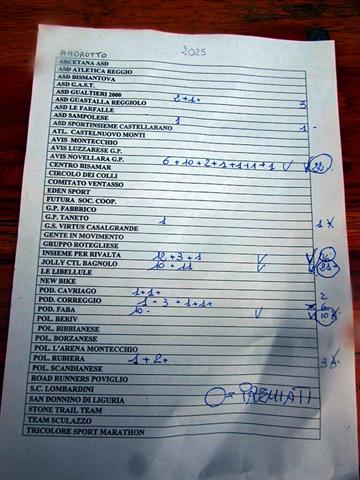 AMOROTTO 2025
ARCETANA ASD
ASD ATLETICA REGGIO
ASD BISMANTOVA
ASD G.A.S.T.
ASD GUALTIERI 2000
ASD GUASTALLA REGGIOLO 2+1+ 3
ASD LE FARFALLE
ASD SAMPOLESE 1
ASD SPORTINSIEME CASTELLARANO 1 -
ATL. CASTELNUOVO MONTI
AVIS MONTECCHIO
AVIS LUZZARESE G.P.
AVIS NOVELLARA G.P. 6+10+2+1+1+1+1
CENTRO BISAMAR
CIRCOLO DEI COLLI
COMITATO VENTASSO
EDEN SPORT
FUTURA SOC. COOP.
G.P. FABBRICO
G.P. TANETO 1
G.S. VIRTUS CASALGRANDE 1
GENTE IN MOVIMENTO
GRUPPO ROTEGLIESE
INSIEME PER RIVALTA 12+3+1 16
JOLLY CTL BAGNOLO 10 - 11 21
LE LIBELLULE
NEW BIKE
POD. CAVRIAGO 1+1+ 2
POD. CORREGGIO 1 - 3 - 1+1+ 6
POD. FABA 10 - 10
POL. BERIV
POL. BIBBIANESE
POL. BORZANESE
POL. L'ARENA MONTECCHIO
POL. RUBIERA 1+2+ 3
POL. SCANDIANESE
ROAD RUNNERS POVIGLIO
S.C. LOMBARDINI
SAN DONNINO DI LIGURIA = PREMIATI
STONE TRAIL TEAM
TEAM SCULAZZO
TRICOLORE SPORT MARATHON